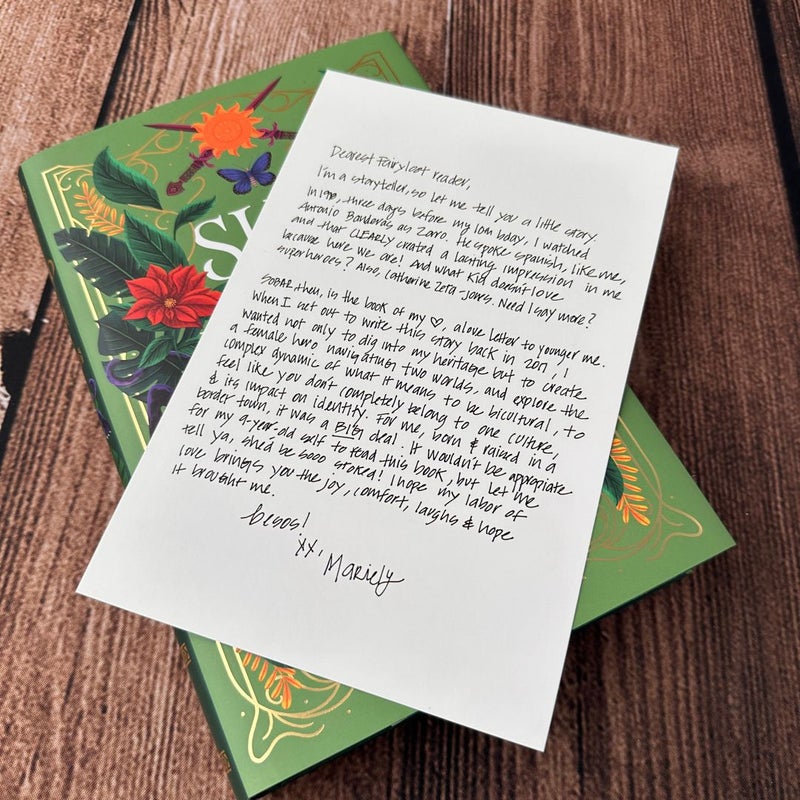 Dearest Fairyloot reader,
I'm a storyteller, so let me tell you a little story.
In 1998, three days before my 10th bday, I watched
Antonio Banderas as Zorro. He spoke Spanish, like me,
and that CLEARLY created a lasting impression in me
because here we are! And what kid doesn't love
superheroes? Also, Catherine Zeta-Jones. Need I say more?
SOBAR then, is the book of my ♡, a love letter to younger me.
When I set out to write this story back in 2017, I
wanted not only to dig into my heritage but to create
a female hero navigating two worlds, and explore the
complex dynamic of what it means to be bicultural, to
feel like you don't completely belong to one culture,
& its impact on identity. For me, born & raised in a
border town, it was a BIG deal. It wouldn't be appropriate
for my 9-year-old self to read this book, but let me
tell ya, she'd be sooo stoked! I hope my labor of
love brings you the joy, comfort, laughs & hope
it brought me.
besos!
xx,
Mariely